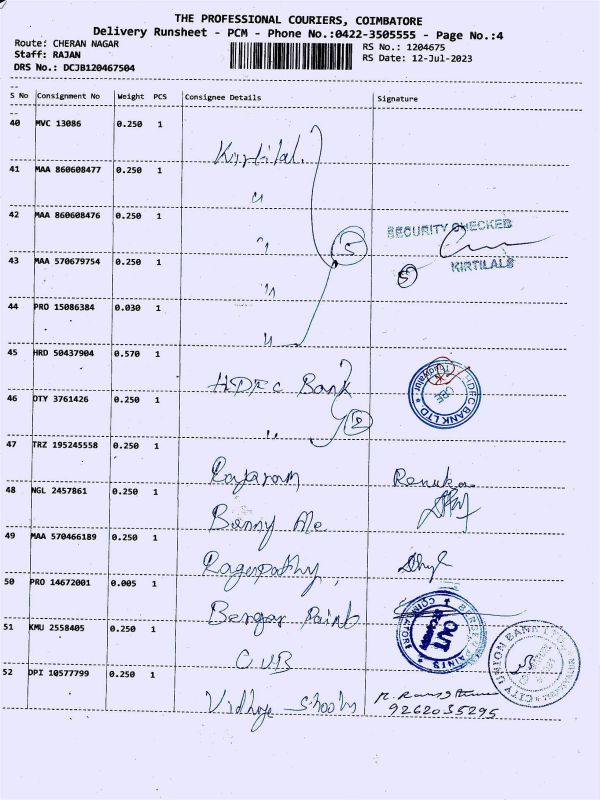 THE PROFESSIONAL COURIERS, COIMBATORE
Delivery Runsheet - PCM - Phone No.:0422-3505555 - Page No.:4
Route: CHERAN NAGAR
RS No.: 1204675
Staff: RAJAN
RS Date: 12-Jul-2023
DRS No.: DCJB120467504
S No Consignment No Weight PCS Consignee Details Signature
40 MVC 13086 0.250 1 Kirtilal.
41 MAA 860608477 0.250 1 "
42 MAA 860608476 0.250 1 "
SECURITY CHECKED
5
43 MAA 570679754 0.250 1 " 5 KIRTILALS
44 PRO 15086384 0.030 1 "
45 HRD 50437904 0.570 1 HDFC Bank
HDFC BANK LTD. CBE
46 DTY 3761426 0.250 1 " 2
47 TRZ 195245558 0.250 1 Rajaram Renuka
48 NGL 2457861 0.250 1
49 MAA 570466189 0.250 1
50 PRO 14672001 0.005 1 Berger Paint
BERGER PAINTS COIMBATORE OUT
51 KMU 2558405 0.250 1 C.U.B
CITY UNION BANK LTD
52 DPI 10577799 0.250 1
9262035295